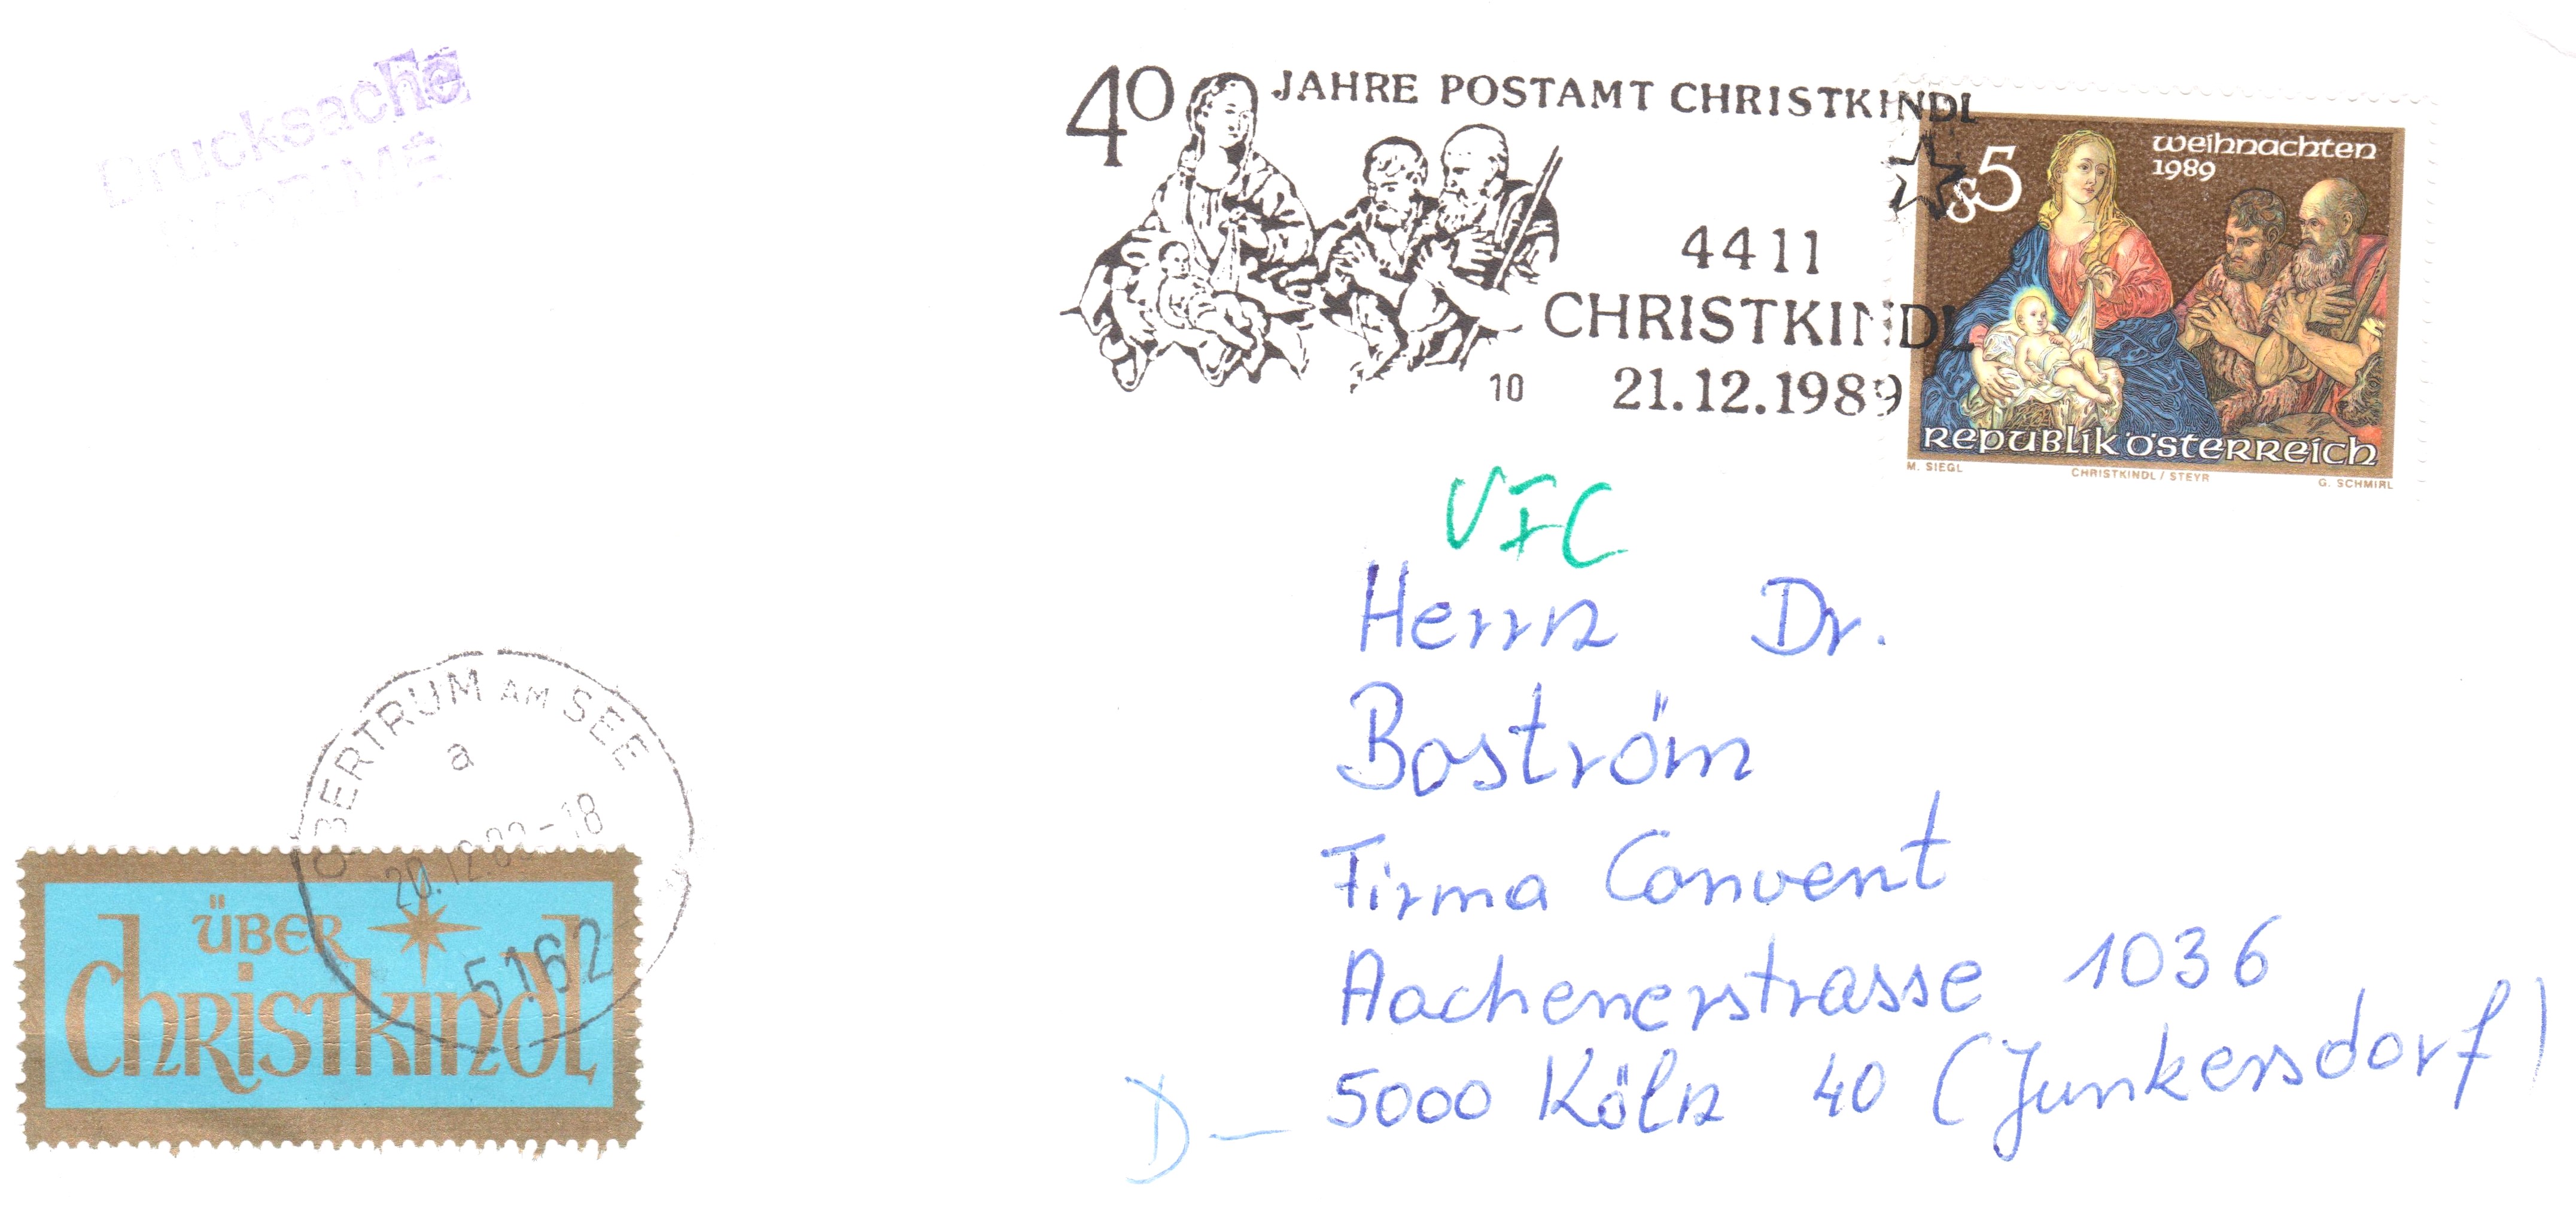 Drucksache
IMPRIMÉ
40 JAHRE POSTAMT CHRISTKINDL
4411
CHRISTKINDL
10
21.12.1989
S5
Weihnachten
1989
Republik Österreich
M. SIEGL
CHRISTKINDL / STEYR
G. SCHMIRL
VFC
Herrn Dr.
Boström
Firma Convent
Aachenerstrasse 1036
D- 5000 Köln 40 (Junkersdorf)
OBERTRUM AM SEE
a
20.12.89-18
5162
ÜBER
Christkindl